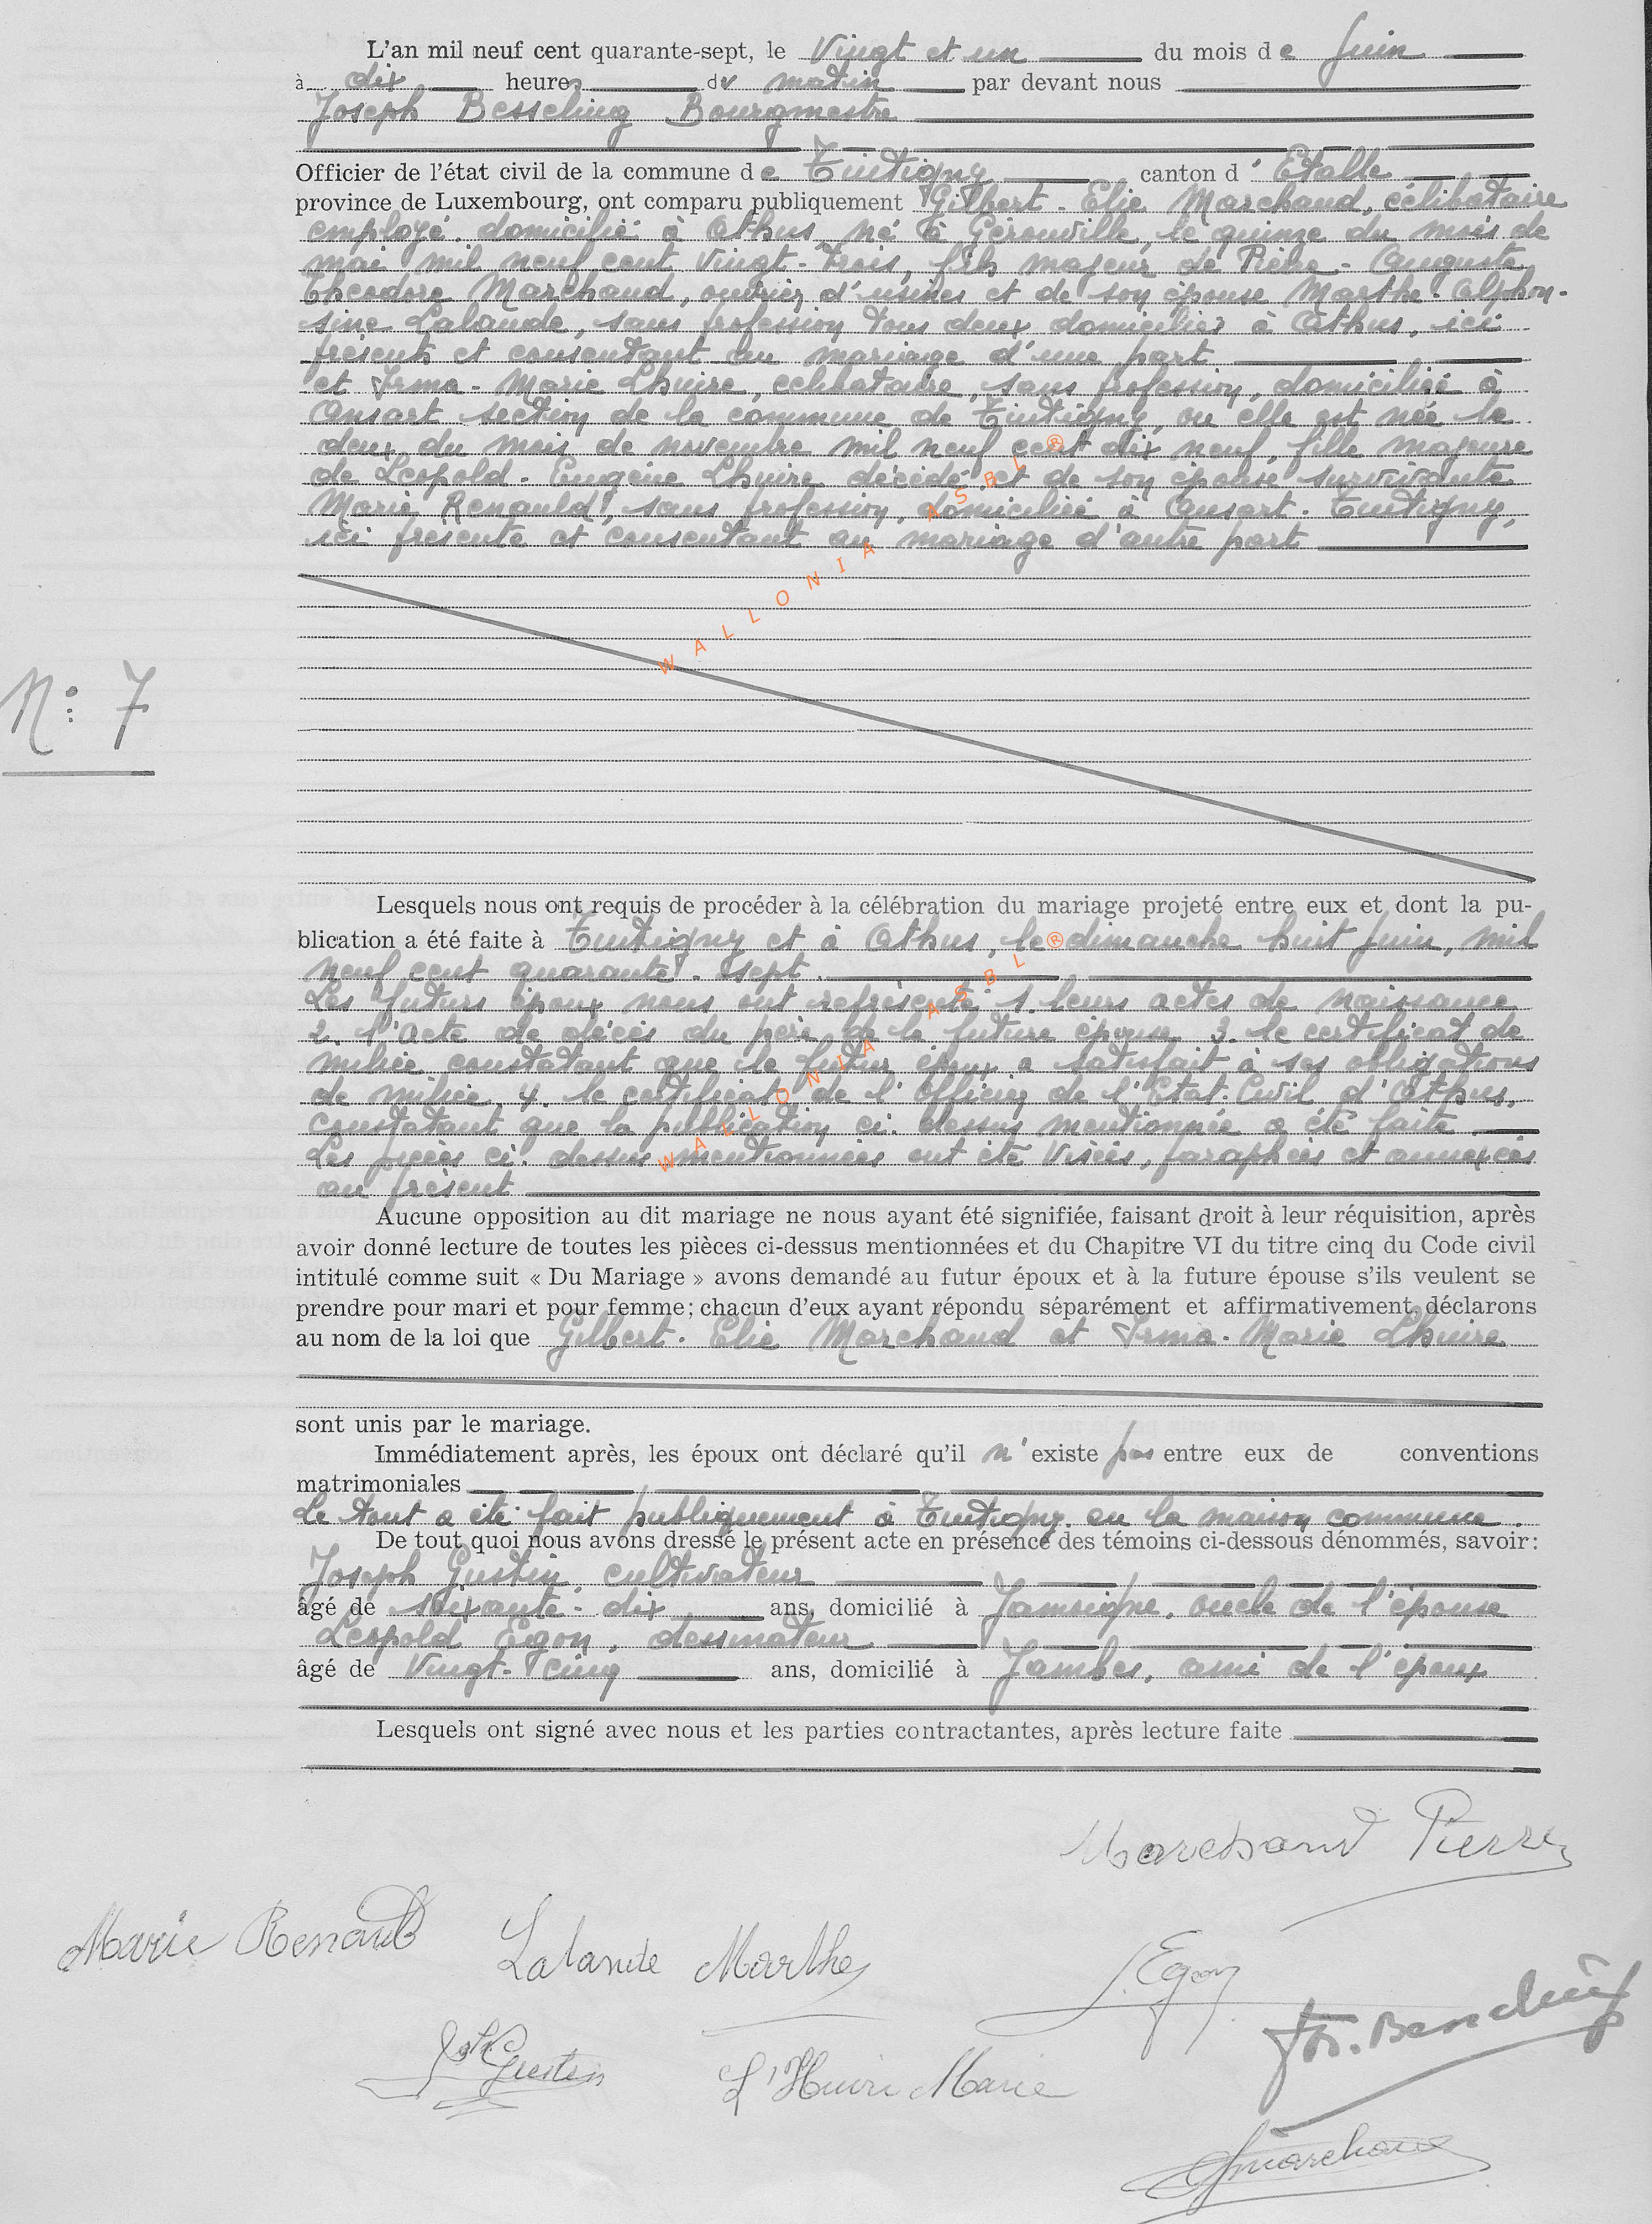 L'an mil neuf cent quarante-sept, le Vingt et un du mois de Juin
à dix heures du matin par devant nous
Joseph Besseling Bourgmestre
Officier de l'état civil de la commune de Tintigny canton d' Etalle
province de Luxembourg, ont comparu publiquement Gilbert-Elie Marchand, célibataire
employé, domicilié à Athus, né à Gérouville, le quinze du mois de
mai mil neuf cent vingt-trois, fils majeur de Pierre-Auguste
Théodore Marchand, ouvrier d'usines et de son épouse Marthe-Alphon-
sine Lalande, sans profession tous deux domiciliés à Athus, ici
présents et consentant au mariage d'une part
et Irma-Marie Lhuire, célibataire, sans profession, domiciliée à
Ansart section de la commune de Tintigny, ou elle est née le
deux du mois de novembre mil neuf cent dix neuf, fille majeure
de Léopold-Eugène Lhuire décédé et de son épouse survivante
Marie Renauld, sans profession, domiciliée à Ansart-Tintigny,
ici présente et consentant au mariage d'autre part
N: 7
Lesquels nous ont requis de procéder à la célébration du mariage projeté entre eux et dont la pu-
blication a été faite à Tintigny et à Athus, le dimanche huit juin, mil
neuf cent quarante-sept.
Les futurs époux nous ont représenté 1. leurs actes de naissance
2. l'acte de décès du père de la future épouse 3. le certificat de
milice constatant que le futur époux a satisfait à ses obligations
de milice, 4. le certificat de l'Officier de l'Etat-Civil d'Athus,
constatant que la publication ci-dessus mentionnée a été faite
Les pièces ci-dessus mentionnées ont été visées, paraphées et annexées
au présent
Aucune opposition au dit mariage ne nous ayant été signifiée, faisant droit à leur réquisition, après
avoir donné lecture de toutes les pièces ci-dessus mentionnées et du Chapitre VI du titre cinq du Code civil
intitulé comme suit « Du Mariage » avons demandé au futur époux et à la future épouse s'ils veulent se
prendre pour mari et pour femme; chacun d'eux ayant répondu séparément et affirmativement, déclarons
au nom de la loi que Gilbert-Elie Marchand et Irma-Marie Lhuire
sont unis par le mariage.
Immédiatement après, les époux ont déclaré qu'il n'existe pas entre eux de conventions
matrimoniales
Le tout a été fait publiquement à Tintigny en la maison commune.
De tout quoi nous avons dressé le présent acte en présence des témoins ci-dessous dénommés, savoir:
Joseph Gustin, cultivateur
âgé de soixante-dix ans, domicilié à Jamoigne, oncle de l'épouse
Léopold Egon, dessinateur
âgé de Vingt-cinq ans, domicilié à Jambes, ami de l'époux
Lesquels ont signé avec nous et les parties contractantes, après lecture faite
Marchand Pierre
Marie Renauld Lalande Marthe L. Egon
Jos. Besseling
Gustin L'Huire Marie
Marchand
WALLONIA ASBL ®
WALLONIA ASBL ®